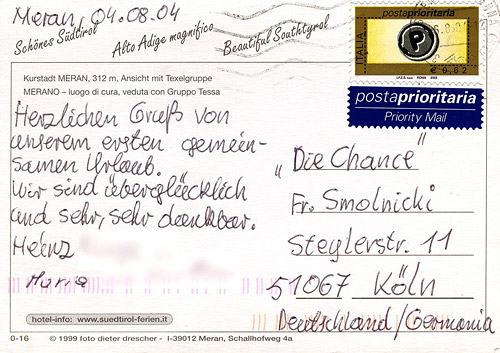 Meran, 04.08.04
Schönes Südtirol
Alto Adige magnifico
Beautiful Southtyrol
Kurstadt MERAN, 312 m, Ansicht mit Texelgruppe
MERANO – luogo di cura, veduta con Gruppo Tessa
Herzlichen Gruß von
unserem ersten gemein-
samen Urlaub.
Wir sind überglücklich
und sehr, sehr dankbar.
Heinz
Maria
postaprioritaria
ITALIA
P
€ 0,62
postaprioritaria
Priority Mail
„Die Chance“
Fr. Smolnicki
Steylerstr. 11
51067 Köln
Deutschland/Germania
hotel-info: www.suedtirol-ferien.it
0-16 © 1999 foto dieter drescher - I-39012 Meran, Schallhofweg 4a